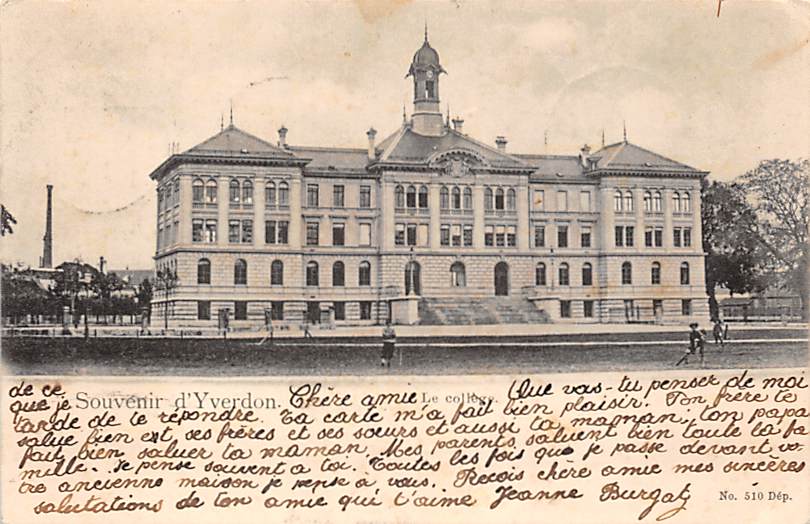 Souvenir d'Yverdon. Le collège.
Chère amie Que vas-tu penser de moi
de ce
que je
tarde de te répondre. Ta carte m'a fait bien plaisir. Ton frère te
salue bien est ses frères et ses soeurs et aussi ta maman; ton papa
fait bien saluer ta maman. Mes parents saluent bien toute la fa
mille. Je pense souvent a toi. Toutes les fois que je passe devant vo
tre ancienne maison je pense a vous. Reçois chère amie mes sincères
salutations de ton amie qui t'aime Jeanne Burgat
No. 510 Dép.